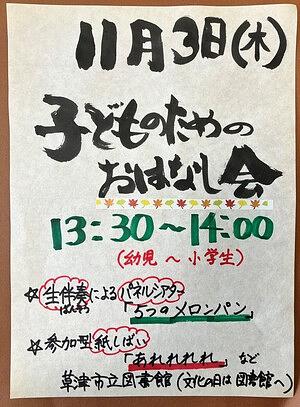 11月3日(木)
子どものための
おはなし会
13:30〜14:00
(幼児〜小学生)
☆生伴奏によるパネルシアター
ばんそう
「5つのメロンパン」
☆参加型紙しばい
「あれれれれ」など
草津市立図書館(文化の日は図書館へ)